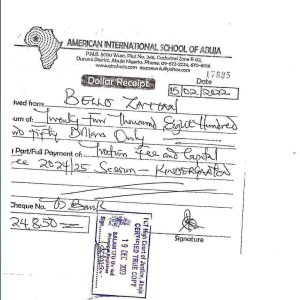 AMERICAN INTERNATIONAL SCHOOL OF ABUJA
P.M.B. 5090 Wuse, Plot No. 346, Cadastral Zone B 02,
Durumi District, Abuja Nigeria. Phone: 09-672-2234, 870-6106
17885
Dollar Receipt
Date
15/02/2022
ived from Bello
um of: Twenty four thousand Eight Hundred
nd fifty Dollars Only
Part/Full Payment of: Tuition Fee and Capital
ee 2024/25 Session - KINDERGARTEN
Cheque No. Bank
24,850=
Signature
FCT High Court of Justice, Abuja
CERTIFIED TRUE COPY
19 DEC 2023
Sign